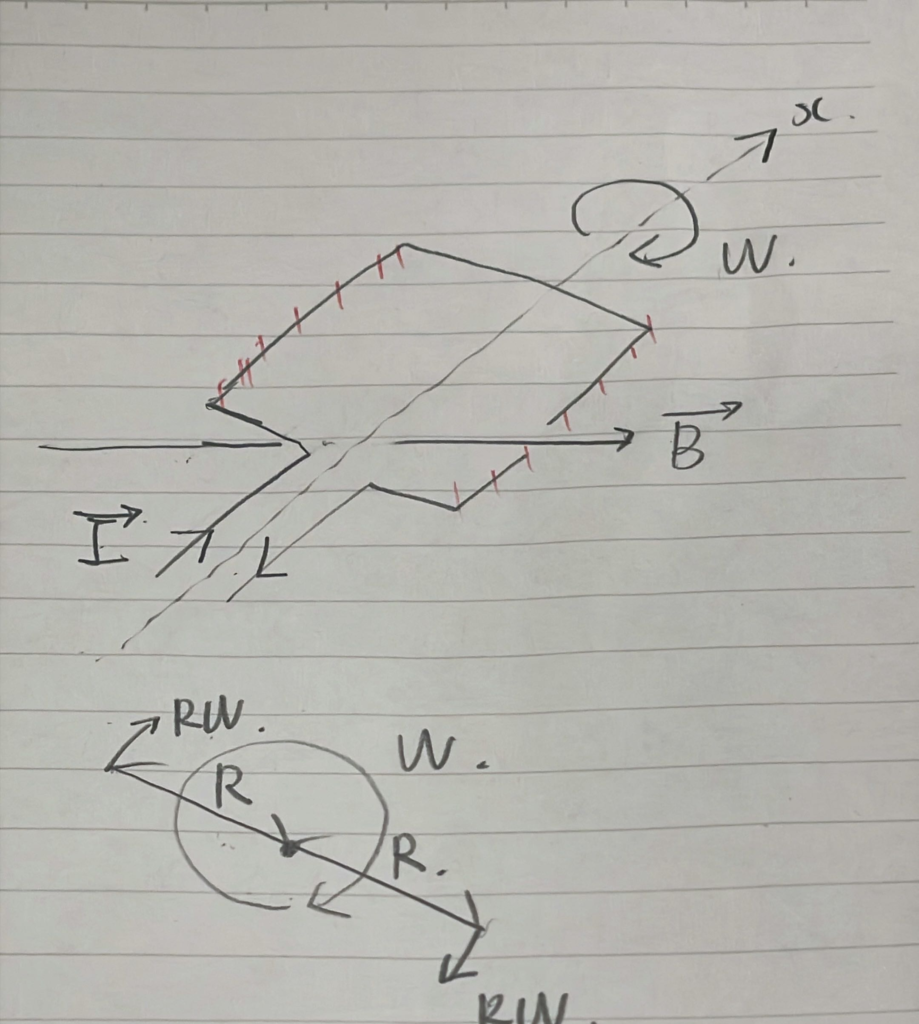 x.
W.
B
I
RW.
W.
R
R.
RW.